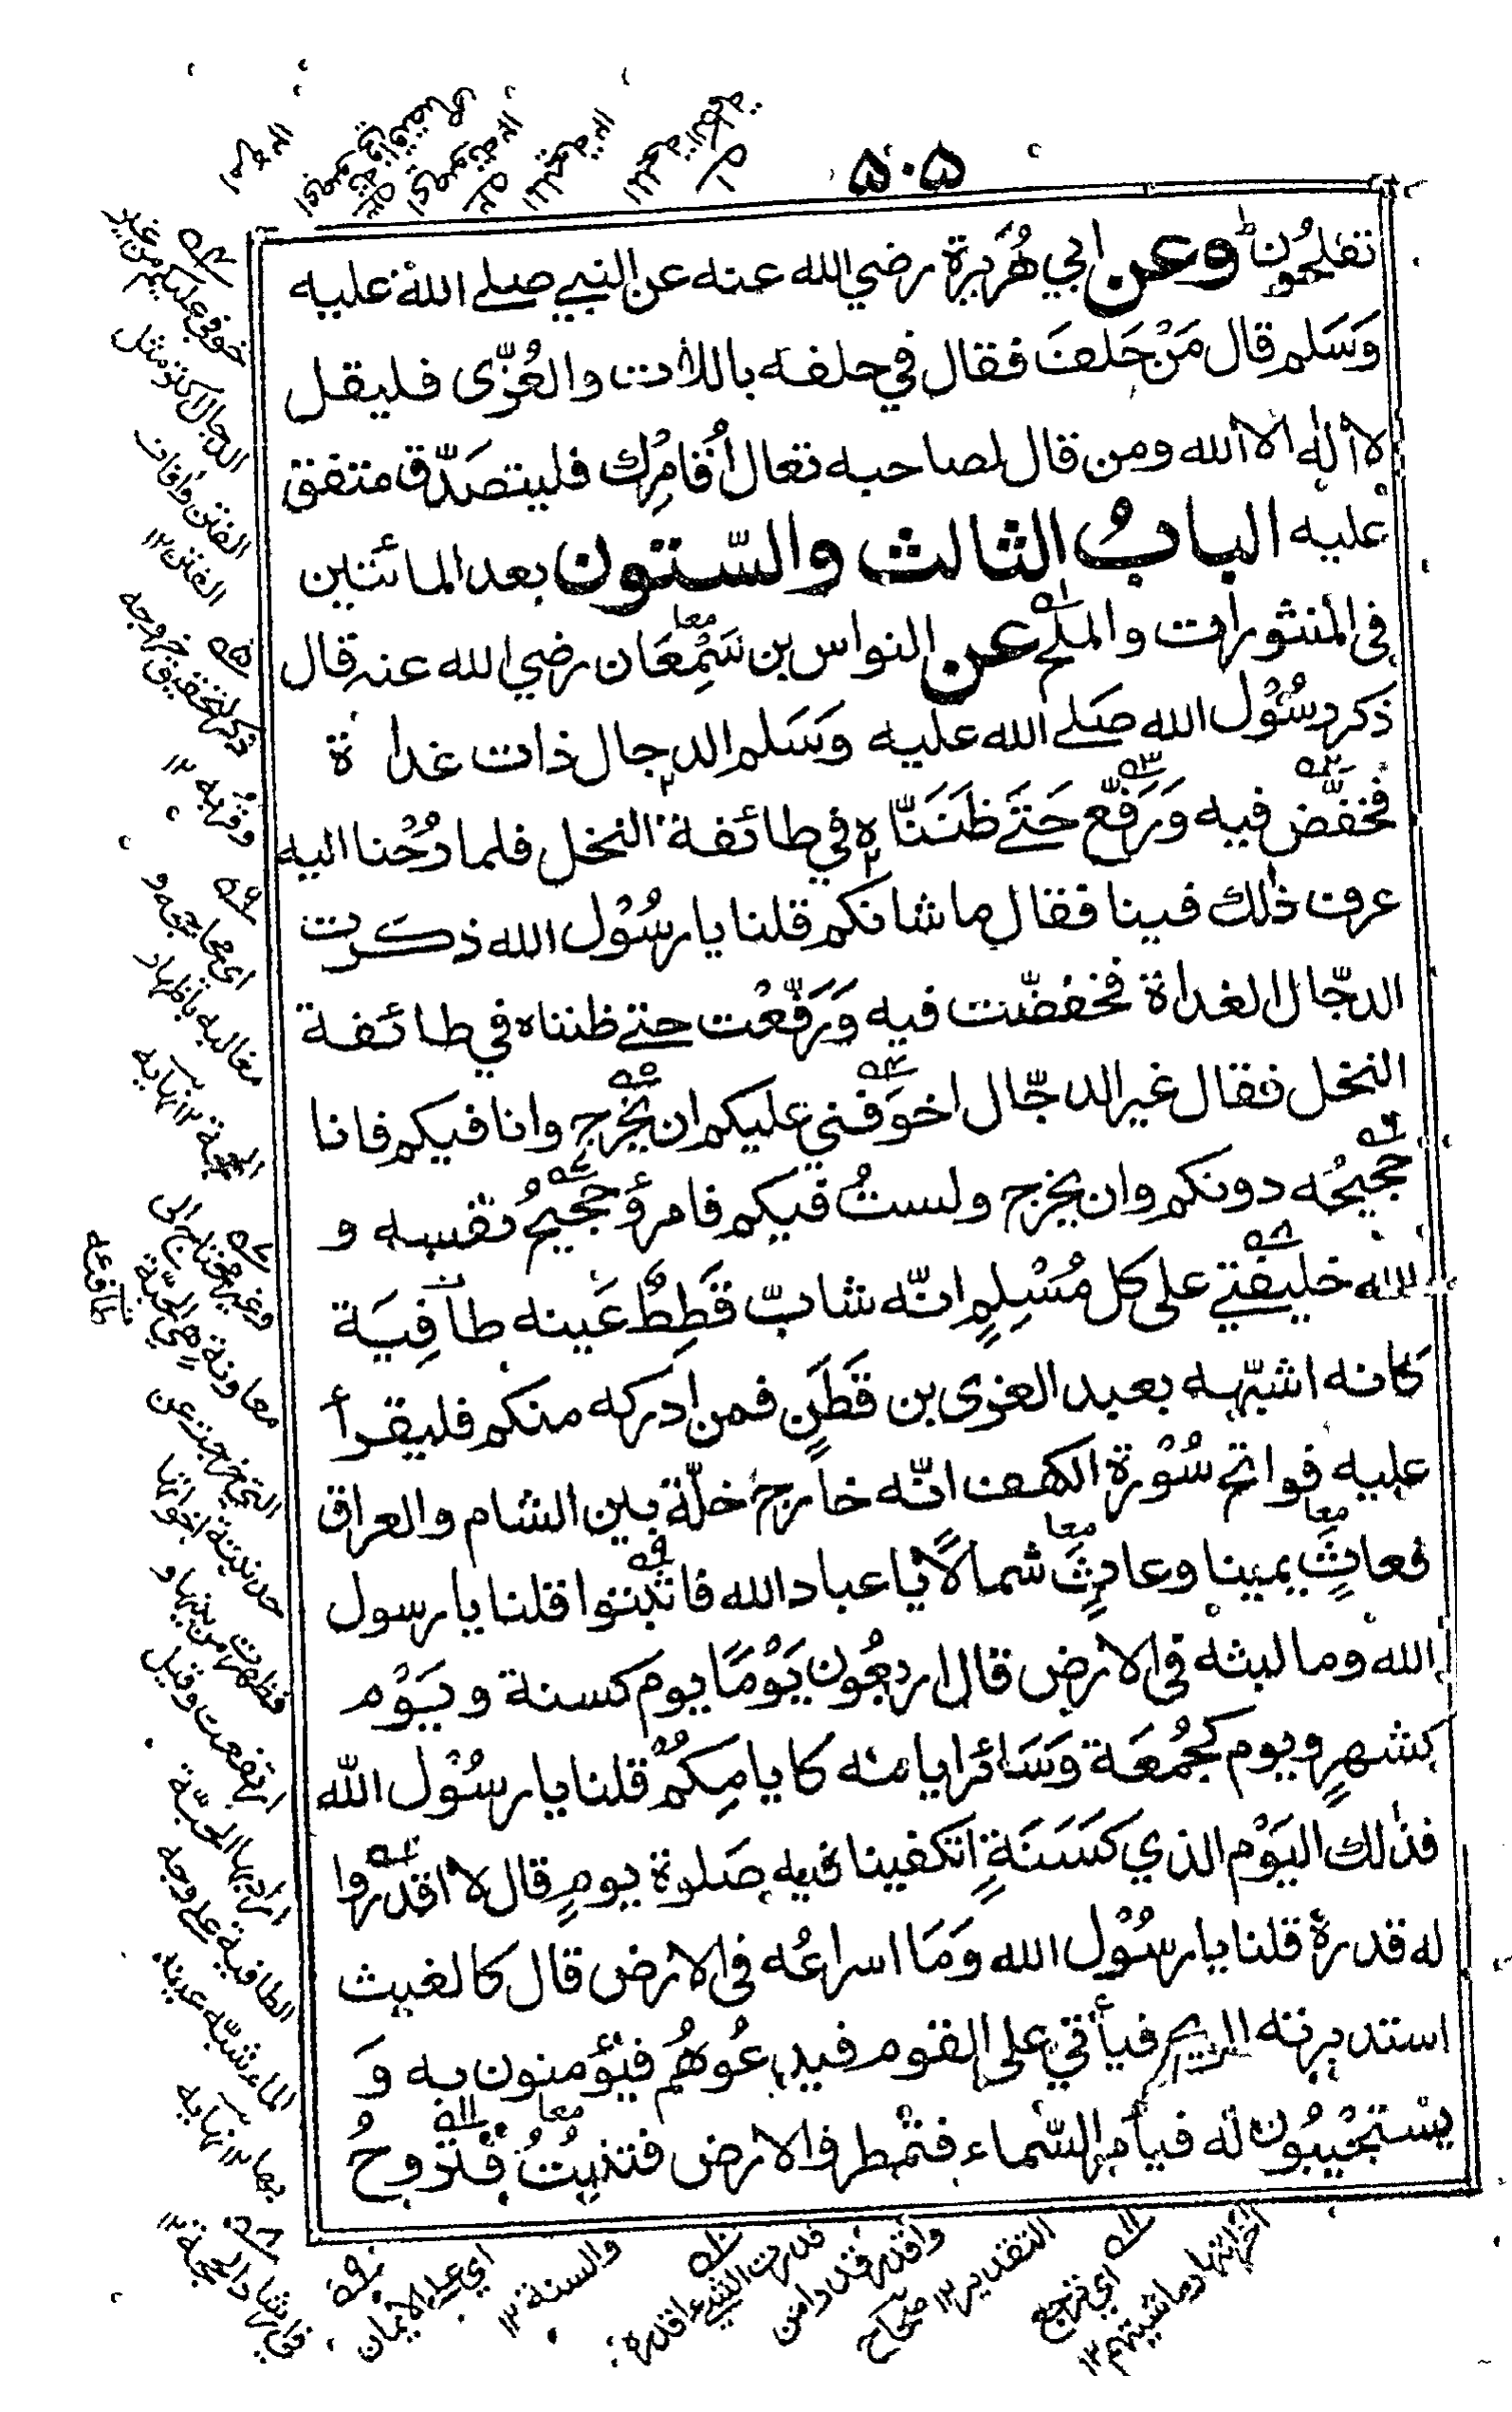 ۵۰۵
تفلحون وعن ابي هُرَيرة رضي الله عنه عن النبي صلے اللهُ عليه
وَسَلم قال مَنْ حَلفَ فقال في حلفه باللات والعُزّى فليقل
لا اله الا الله ومن قال لصاحبه تعال اُقامِرْك فليتصَدّق متفق
عليه البابُ الثالث والسّتون بعد المائتين
فى المنثورات والملح عن النواس بن سَمْعَان رضي الله عنه قال
ذكر رسُوْل الله صَلے الله عليه وَسَلم الدجال ذات غداة
فخفّض فيه وَرَفّع حَتے ظنَنّاه في طائفة النخل فلما رُحْنا اليه
عرف ذٰلك فينا فقال ما شانكم قلنا يا رسُوْل الله ذكرت
الدجّال الغداة فخفضّت فيه وَرَفّعْت حتے ظنناه في طائفة
النخل فقال غير الدجّال اخوَفني عليكم ان يخرج وانا فيكم فانا
حجيجُه دونكم وان يخرج ولستُ فيكم فامرؤ حجيجُ نفسه و
الله خليفتے على كل مُسْلِمٍ انّه شابّ قَطِطٌ عَينه طآفِيَة
كانه اشبّهه بعبد العزى بن قَطَنٍ فمن ادركه منكم فليقرأ
عليه فواتح سُوْرة الكهف انّه خارج خلّة بين الشام والعراق
فعاثٍ يمينا وعاثٍ شمالًا يا عباد الله فاثبتوا قلنا يا رسول
الله وما لبثه فى الارض قال اربعُون يَوْمًا يوم كسنة ويَوْم
كشهرٍ ويوم كجُمُعَة وَسَائر ايامه كايامِكُمْ قلنا يا رسُوْل الله
فذٰلك اليَوْم الذي كسَنَةٍ اتكفينا فيه صَلوة يومٍ قال لا اقدروا
له قدرة قلنا يا رسُوْل الله وَمَا اسراعُه فى الارض قال كالغيث
استدبرته الريح فيأتي على القوم فيدعُوهُم فيؤمنون به وَ
يستجيْبُون له فيأمر السّماء فتمْطر والارض فتنبتُ فتروحُ
خوفي عليكم من غير
الدجال اكثر مثل
الفتن وافات
الفتن ۱۲
ذكر تحقيق خروجه
وقربه ۱۲
اى محاجه و
مغالبه باظهار
الحجة ۱۲ نهايه
وغير محتاج الى
معاونة
التي خرجت عن
حد نبتة اخواتها
فظهرت من بينها و
ارتفعت وقيل
اراد بها الحبّة
الطافية على وجه
الماء شبّه عينه
بها ۱۲ نهايه
اي على الايمان
والسنة ۱۲
قدرت الشيء اقدره
التقدير ۱۲ صحاح
اي ترجع